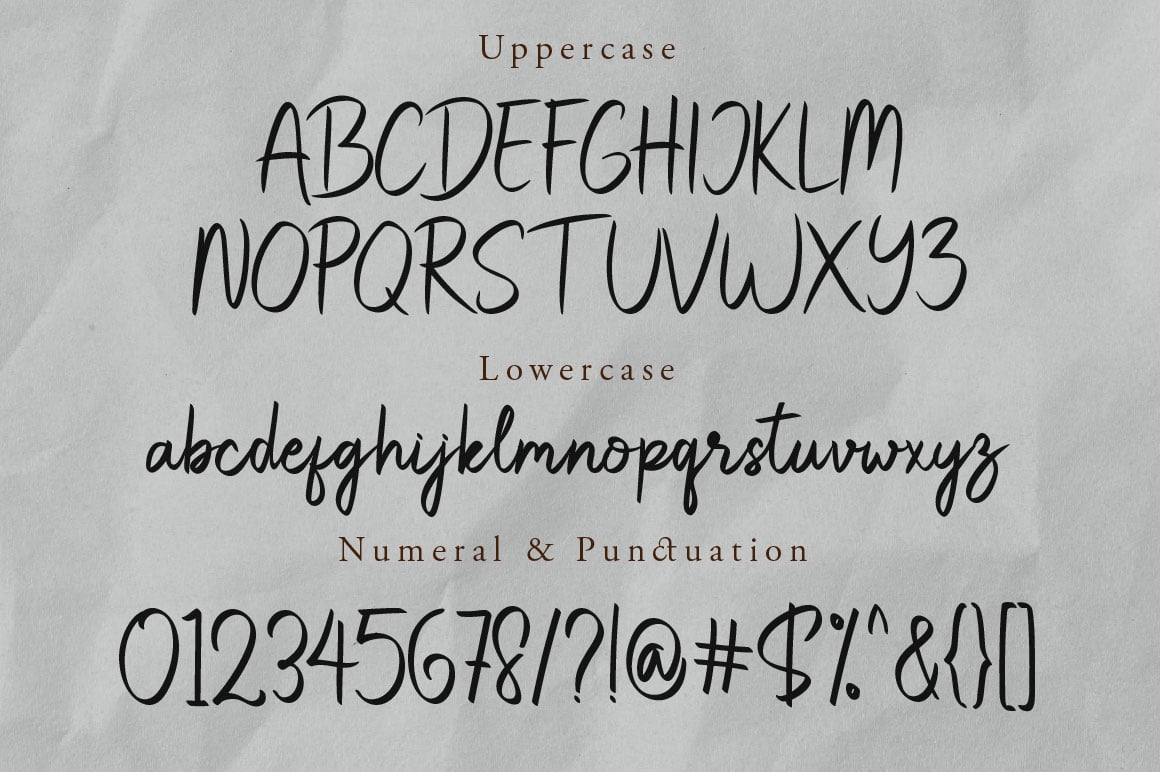 Uppercase
ABCDEFGHIJKLM
NOPQRSTUVWXYZ
Lowercase
abcdefghijklmnopqrstuvwxyz
Numeral & Punctuation
012345678/?!@#$%^&{}[]